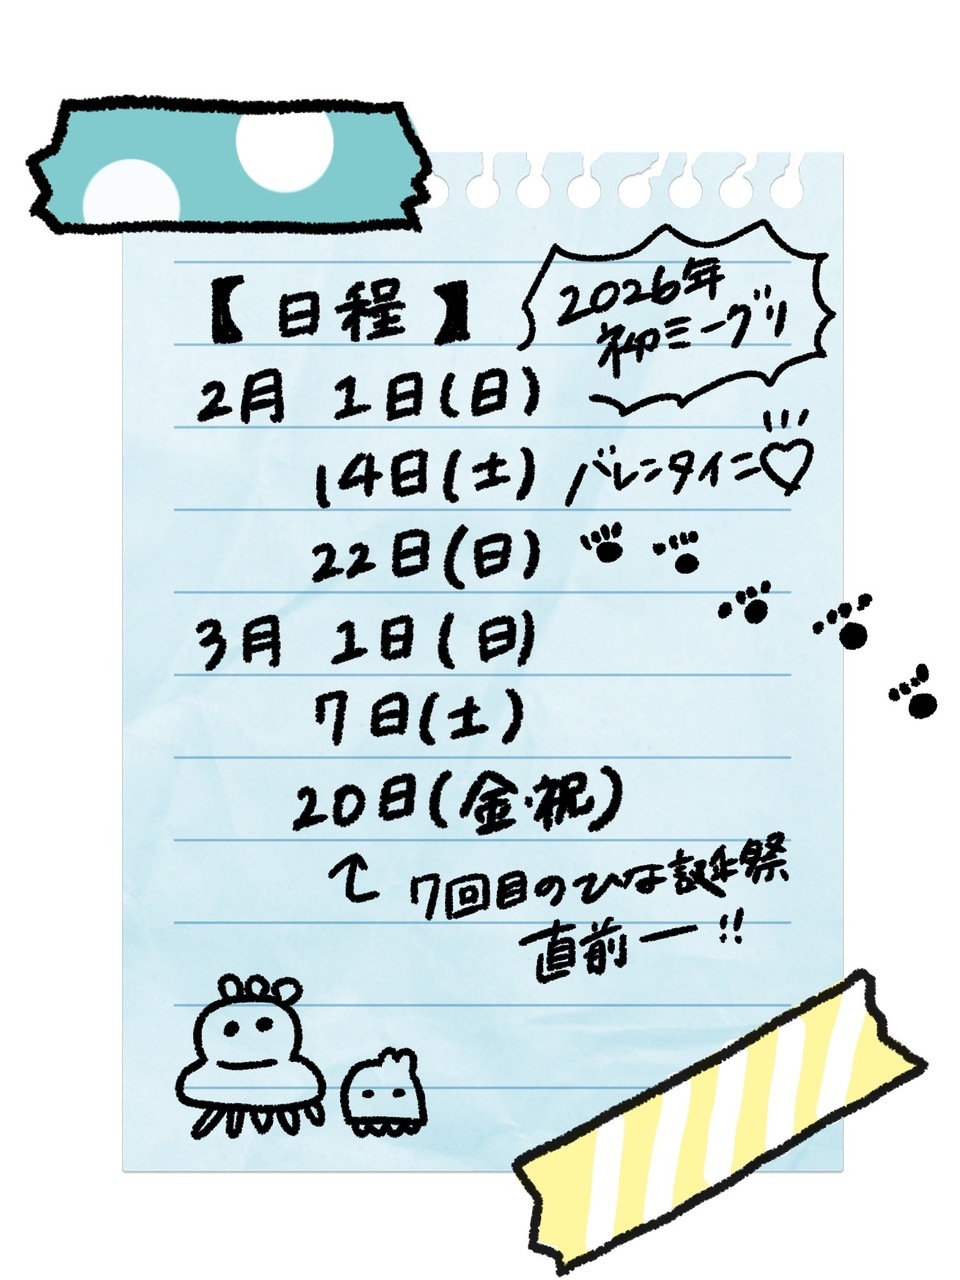 【日程】
2026年
初ミーグリ
2月 1日(日)
14日(土) バレンタイン♡
22日(日)
3月 1日(日)
7日(土)
20日(金・祝)
↑ 7回目のひな誕祭
直前ー!!